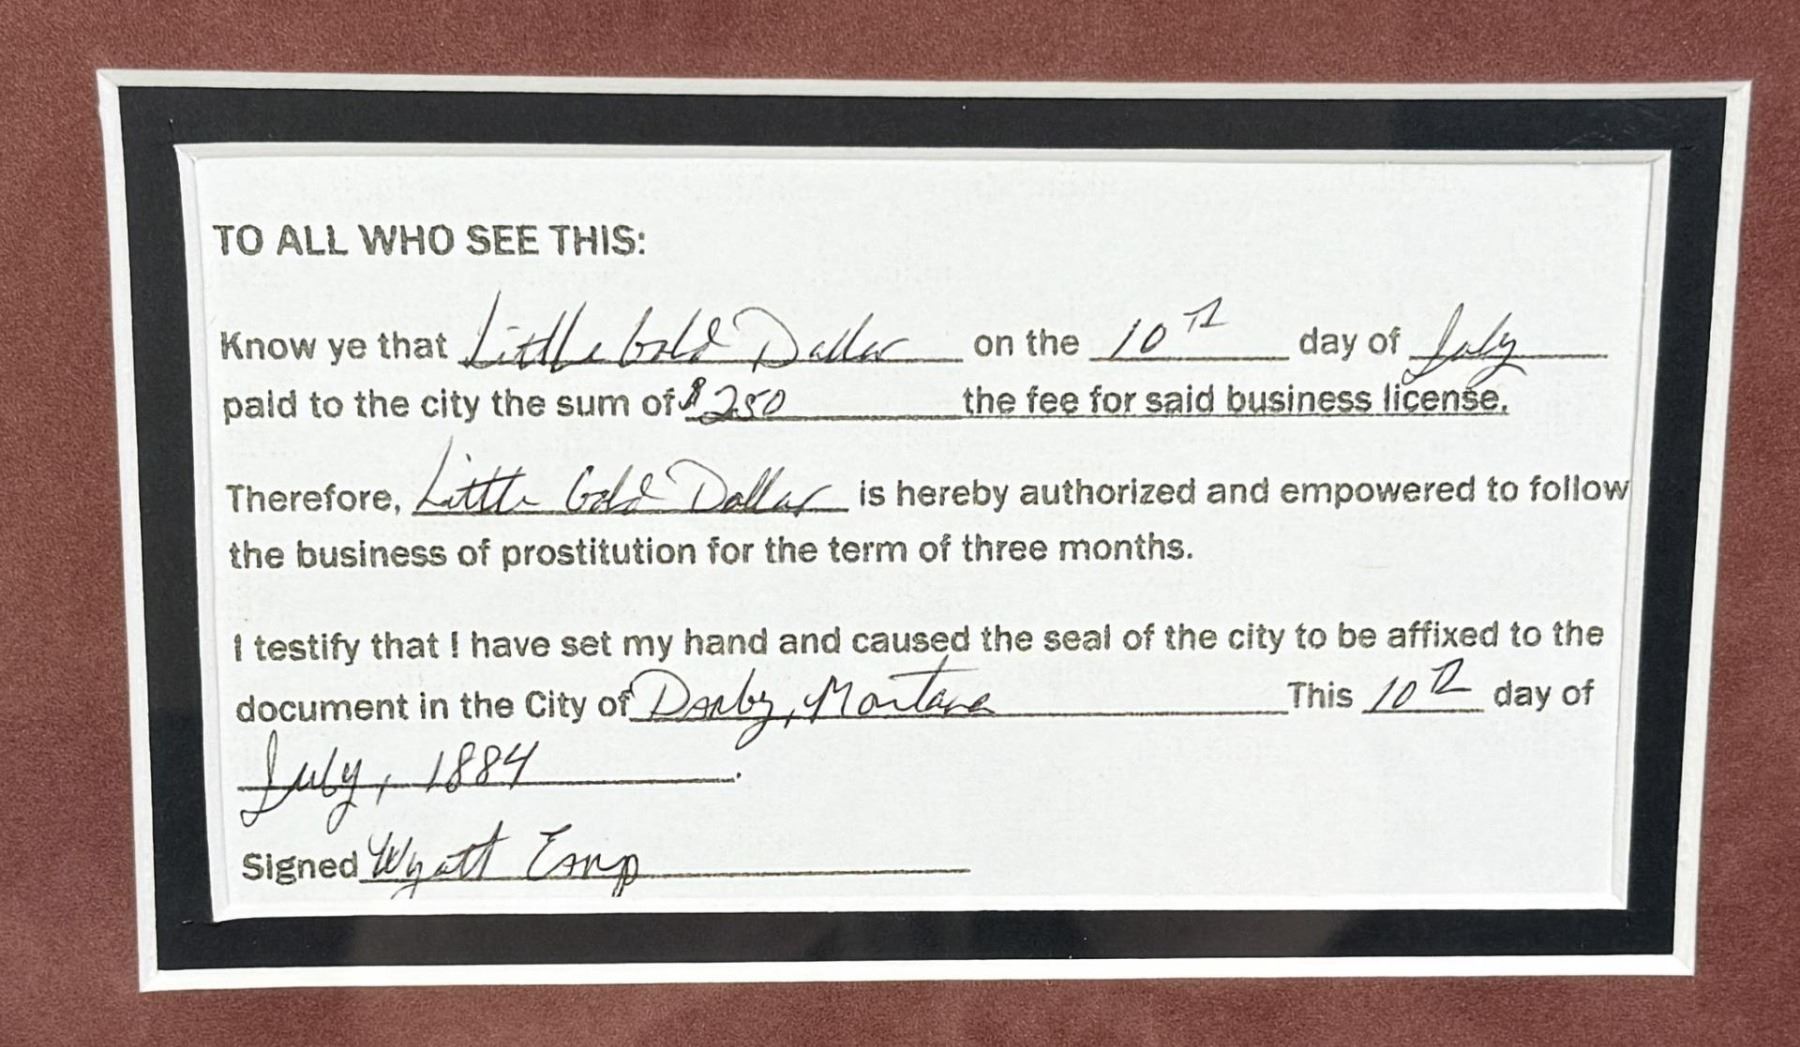 TO ALL WHO SEE THIS:
Know ye that Little Gold Dollar on the 10th day of July
paid to the city the sum of $250 the fee for said business license.
Therefore, Little Gold Dollar is hereby authorized and empowered to follow
the business of prostitution for the term of three months.
I testify that I have set my hand and caused the seal of the city to be affixed to the
document in the City of Darby, Montana This 10th day of
July, 1884.
Signed Wyatt Earp